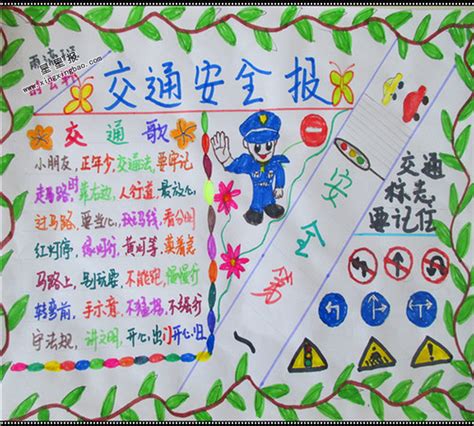 星星报
www.xingxingbao.com
交通安全报
交通歌
小朋友,正年少,交通法,要牢记
走马路时靠右边,人行道,最放心
过马路,要当心,斑马线,看分明
红灯停,绿灯行,黄灯等,
马路上,别玩耍,不能跑,慢慢行
转弯前,手示意,不猛拐,不强行
守法规,讲文明,开心出门开心归
安全第一
交通
标志
要记住